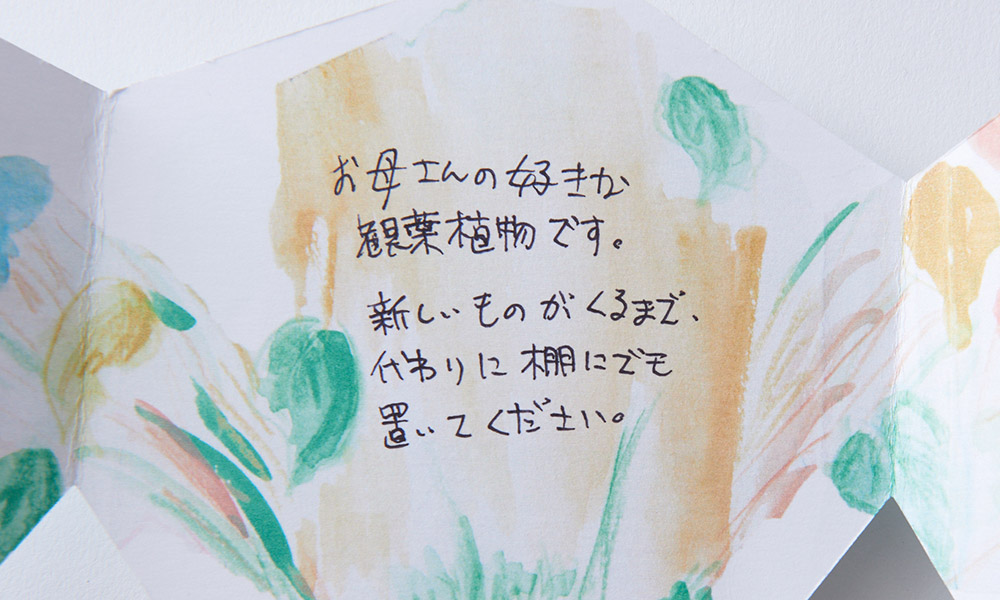 お母さんの好きな
観葉植物です。
新しいものがくるまで、
代わりに棚にでも
置いてください。